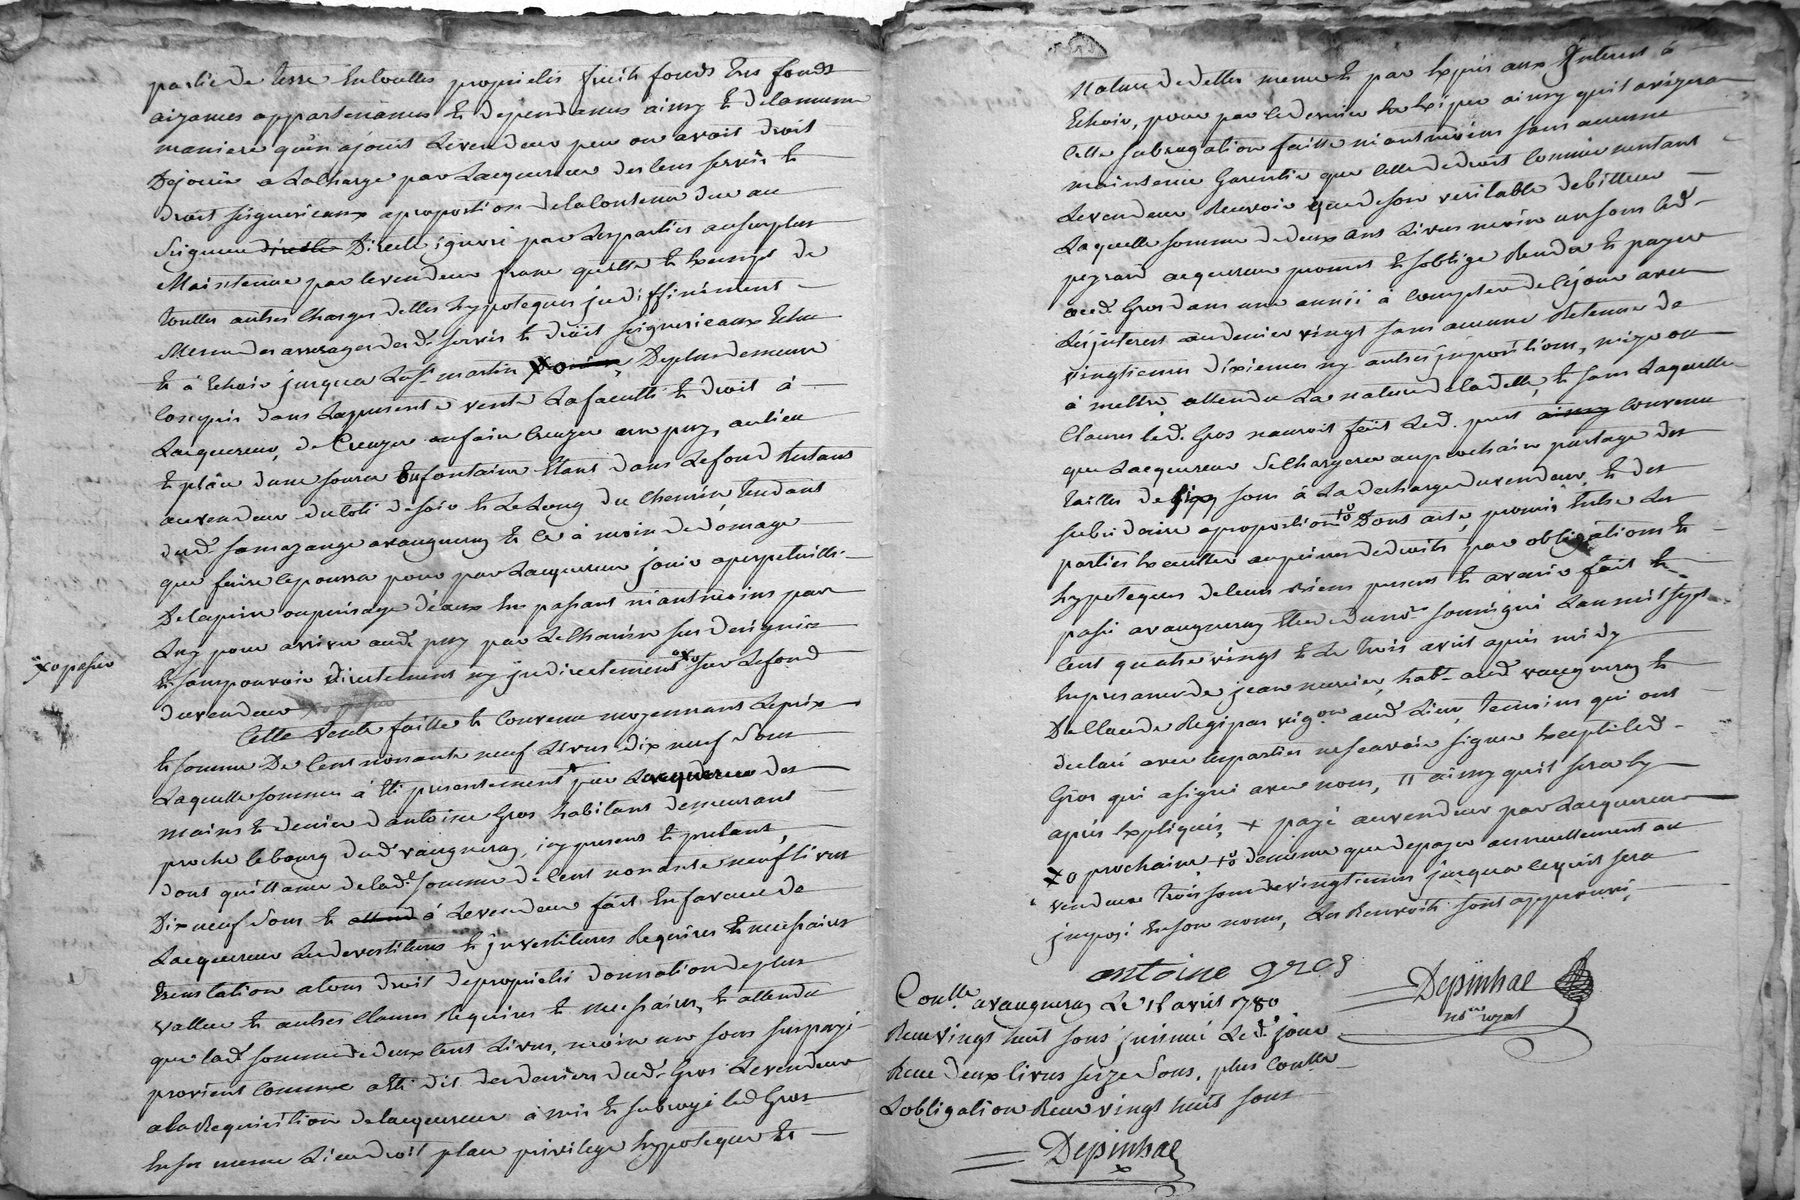 partie de terre en toutte proprietés fruits fonds tres fonds
aizances appartenances et dependances ainsy et de la mesme
maniere qu'en a jouit le vendeur peu ou avait droit
de jouir a la charge par lacquereur des cens servis et
droit seigneuriaux a proportion de la contenue due au
seigneur direct ignoré par les parties au surplus
maintenue par le vendeur franc quitte et exempt de
touttes autres charges dettes hypoteques judiffiniment
mesme des arrerages desd. servis et droit seigneuriaux echu
et à echoir jusqua la st martin xo De plus demeure
compris dans la presente vente la faculté et droit à
lacquereur, de creuzer ou faire creuzer un puy, au lieu
et place d'une source ou fontaine etant dans le fond restant
au vendeur du coté de soir et le long du chemin tendant
dud. a vaugneray et ce à moin de domage
que faire ce pourra pour par lacquereur jouir a perpetuitté
De la prise ou puisage d'eaux en passant niantmoins par
luy pour arriver aud. puy par le chemin sus designé
et sans pouvoir directement ny judirectement xo sur le fond
du vendeur
xo passer
Cette vente faitte et convenu moyennant le prix
et somme De cent nonante neuf livres dix neuf sous
laquelle somme à eté presentement par lacquereur des
mains et denier d'antoine Gros habitant demeurant
proche le bourg dud. vaugneray, icy present et pretant,
dont quittance de lad. somme de cent nonante neuf livres
Dix neuf sous et à le vendeur fait en faveur de
lacquereur les devestitures et jnvestitures requises et necessaires
translation a tous droit de propriété donnation de plus
vallue et autres clauses requises et necessaires, et attendu
que lad. somme de deux cent livres, moin un sous sus payé
provient comme a eté dit des deniers dud. Gros le vendeur
a la requisition de lacquereur à mis et subrogé led Gros
en son meme lieu droit place privilege hypoteque et
nature de dettes meme et par exprès aux jnterest à
echoir, pour par le dernier les exiger ainsy qu'il avizera
cette subrogation faitte niantmoins sans aucune
maintenue garentie que celle de droit comme n'entant
le vendeur recevoir que de son veritable debitteur
laquelle somme de deux cent livres moin un sous led.
peyrard acquereur promet et soblige rendre et payer
aud. Gros dans une année à compter de ce jour avec
les jnterest au denier vingt sans aucune retenue de
vingtiemes dixiemes ny autres jmpositions, mize ou
à mettre, attendu la nature de la dette, et sans laquelle
clause led. Gros nauroit fait led. pret convenu
que lacquereur se chargera au prochain partage des
tailles de six sous à la decharge du vendeur, et des
subsidaire a proportion xo Dont acte, promis entre les
parties executter aux peines de droits par obligations et
hypoteques de leurs biens present et avenir fait et
passé a vaugneray etude du nre soussigné lan mil sept
cent quatre vingt et le trois avril après midy
en presance de jean mercier, habt. aud vaugneray et
De Claude Regipas vigon aud lieu, temoins qui ont
declaré avec les parties ne scavoir signer excepté led.
Gros qui a signé avec nous, π ainsy qu'il sera cy
après expliqué, + payé au vendeur par lacquereur
xo prochaine, xo de meme que de payer annuellement au
vendeur trois sous de vingtiemes jusqua ce qu'il sera
jmposé en son nom, les renvoits sont approuvé
antoine gros
Depinhac
nre royal
Conllé a vaugneray le 15 avril 1780
Reçu vingt huit sous jnsinué led. jour
Reçu deux livres seize sous, plus conllé
l'obligation Reçu vingt huit sous
Depinhac